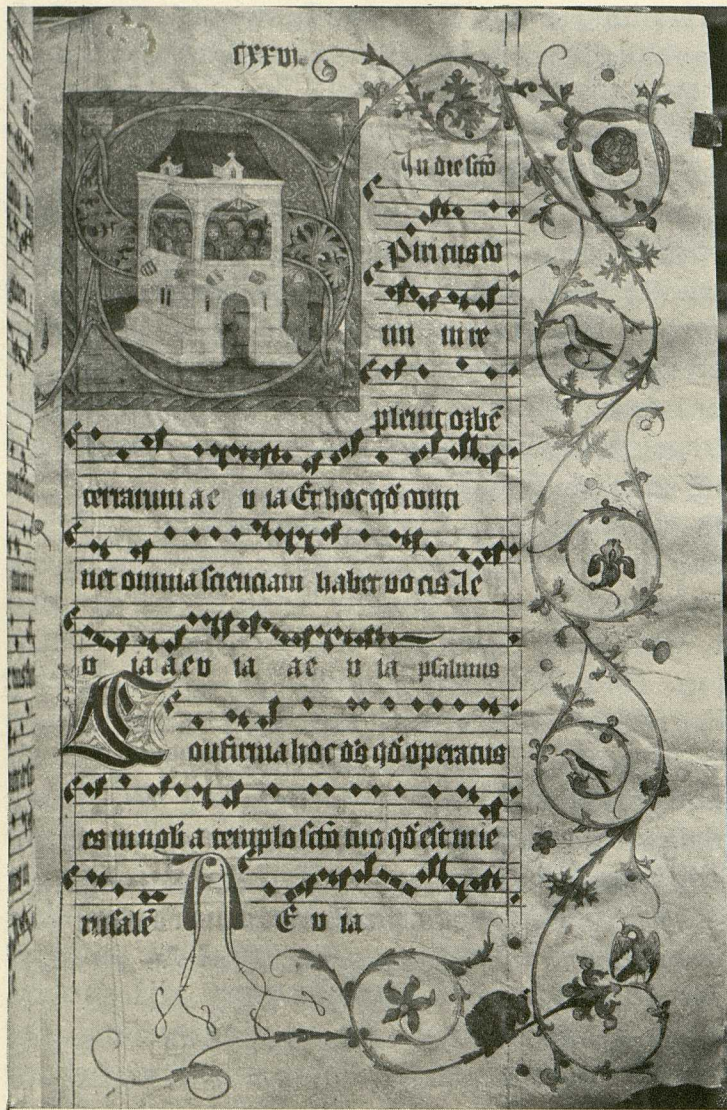 CXXVI
In die scto
Piritus do
mi ni re
pleuit orbē
terrarum ae v ia Et hoc qđ conti
net omnia scienciam habet vocis Ae
v ia aev ia ae v ia psalmus
Confirma hoc ds qđ operatus
es in nob a templo scto tuo qđ est in ie
rusalē E v ia